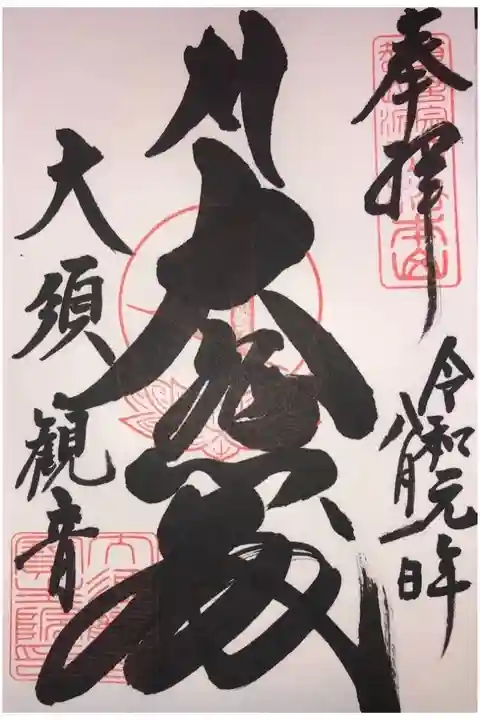 奉拝
令和元年
八月日
大悲殿
大須観音